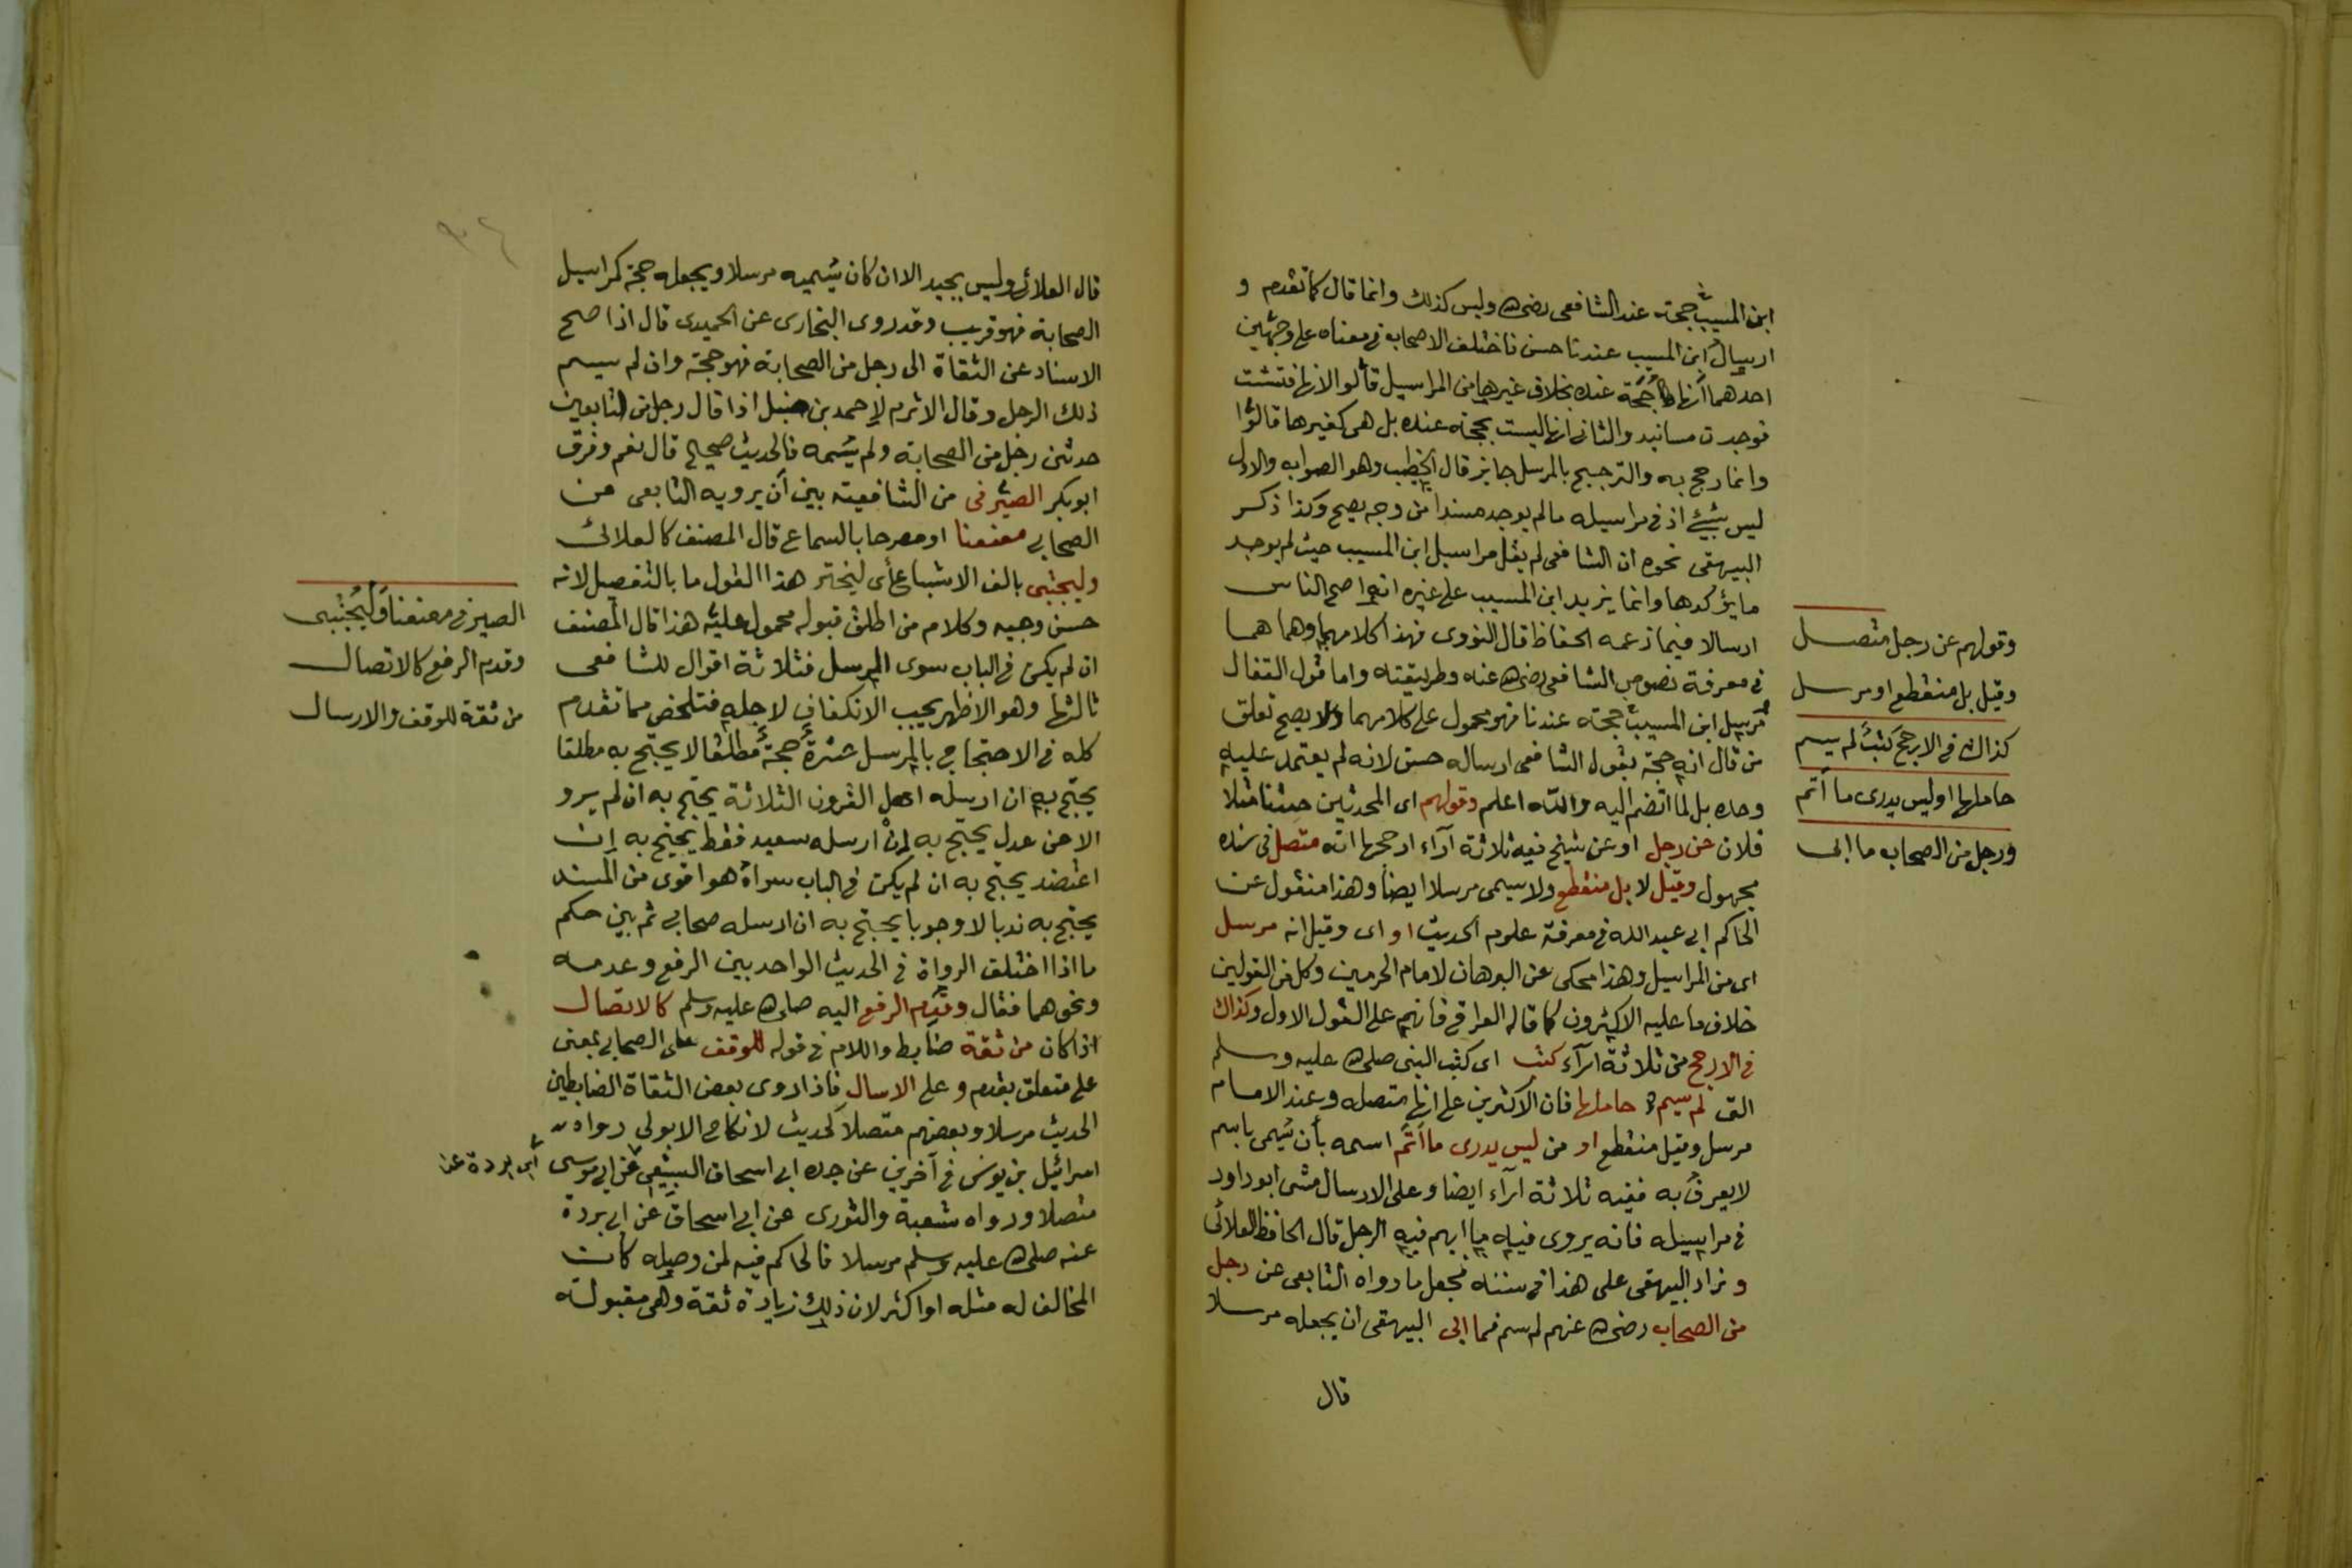 ابن المسيب حجة عند الشافعى رضى الله وليس كذلك وانما قال كما تقدم و
ارسال ابن المسيب عندنا حسن فاختلف الاصحاب فى معناه على وجهين
احدهما انها حجة عنده بخلاف غيرها من المراسيل قالوا لانها فتشت
فوجدت مسانيد والثانى انها ليست بحجة عنده بل هى كغيرها قالوا
وانما رجح به والترجيح بالمرسل جايز قال الخطيب وهو الصواب والاول
ليس بشئ اذ فى مراسيله مالم يوجد مسندا من وجه يصح وكذا ذكر
البيهقى نحوه ان الشافعى لم يقبل مراسيل ابن المسيب حيث لم يوجد
ما يؤكدها وانما يزيد ابن المسيب على غيره انه اصح الناس
ارسالا فيما زعمه الحفاظ قال النووى فهذا كلامهما وهما هما
فى معرفة نصوص الشافعى رضى الله عنه وطريقته واما قول القفال
مرسل ابن المسيب حجة عندنا فهو محمول على كلامهما ولا يصح تعلق
من قال انه حجة بقول الشافعى ارساله حسن لانه لم يعتمد عليه
وحده بل لما انضم اليه والله اعلم وقولهم اى المحدثين حدثنا مثلا
فلان عن رجل او عن شيخ فيه ثلاثة آراء ارجحها انه متصل فى سنده
مجهول وقيل لا بل منقطع ولا يسمى مرسلا ايضا وهذا منقول عن
الحاكم ابى عبد الله فى معرفة علوم الحديث او اى وقيل انه مرسل
اى من المراسيل وهذا محكى عن البرهان لامام الحرمين وكل من القولين
خلاف ما عليه الاكثرون كما قاله العراقى فانهم على القول الاول وكذاك
فى الارجح من ثلاثة اراء كتب اى كتب النبى صلى الله عليه وسلم
التى لم يسم حاملها فان الاكثرين على انها متصله وعند الامام
مرسل وقيل منقطع او من ليس يدرى ما أتم اسمه بأن يسمى باسم
لا يعرف به ففيه ثلاثة اراء ايضا وعلى الارسال مشى ابو داود
فى مراسيله فانه يروى فيه ما ابهم فيه الرجل قال الحافظ العلائى
وزاد البيهقى على هذا فى سننه فجعل ما رواه التابعى عن رجل
من الصحاب رضى الله عنهم لم يسم فما ابى البيهقى ان يجعله مرسلا
قال
وقولهم عن رجل متصل
وقيل بل منقطع او مرسل
كذاك فى الارجح كتب لم يسم
حاملها او ليس يدرى ما أتم
ورجل من الصحاب ما ابى
قال العلائى وليس بجيد الا ان كان يسميه مرسلا ويجعله حجة كمراسيل
الصحابة فهو قريب وقد روى البخارى عن الحميدى قال اذا صح
الاسناد عن الثقاة الى رجل من الصحابة فهو حجة وان لم يسم
ذلك الرجل وقال الاثرم لاحمد بن حنبل اذا قال رجل من التابعين
حدثنى رجل من الصحابة ولم يسمه فالحديث صحيح قال نعم وفرق
ابو بكر الصيرفى من الشافعية بين أن يرويه التابعى عن
الصحابى معنعنا او مصرحا بالسماع قال المصنف كالعلائى
وليجتبى بالف الاشباع أى ليختر هذا القول ما بالتفصيل لانه
حسن وجيه وكلام من اطلق قبوله محمول عليه هذا قال المصنف
ان لم يكن فى الباب سوى المرسل فثلاثة اقوال للشافعى
ثالثها وهو الاظهر يجب الانكفاف لاجله فتلخص مما تقدم
كله فى الاحتجاج بالمرسل عشرة حجة مطلقا لا يحتج به مطلقا
يحتج به ان ارسله اهل القرون الثلاثة يحتج به ان لم يرو
الا عن عدل يحتج به ان ارسله سعيد فقط يحتج به ان
اعتضد يحتج به ان لم يكن فى الباب سواه هو اقوى من المسند
يحتج به ندبا لا وجوبا يحتج به ان ارسله صحابى ثم بين حكم
ما اذا اختلف الرواة فى الحديث الواحد بين الرفع وعدمه
ونحوهما فقال وقدم الرفع اليه صلى الله عليه وسلم كالاتصال
اذا كان من ثقة ضابط واللام فى قوله للوقف على الصحابى بمعنى
على متعلق بقدم وعلى الارسال فاذا روى بعض الثقاة الضابطين
الحديث مرسلا وبعضهم متصلا كحديث لا نكاح الا بولى رواه
اسرائيل بن يونس فى آخرين عن جده ابى اسحاق السبيعى عن ابى موسى
ابى بردة عن
متصلا ورواه شعبة والثورى عن ابى اسحاق عن ابى بردة
عنه صلى الله عليه وسلم مرسلا فالحاكم فيه لمن وصله كان
المخالف له مثله او اكثر لان ذلك زيادة ثقة وهى مقبولة
الصيرفى معنعنا وليجتبى
وقدم الرفع كالاتصال
من ثقة للوقف والارسال